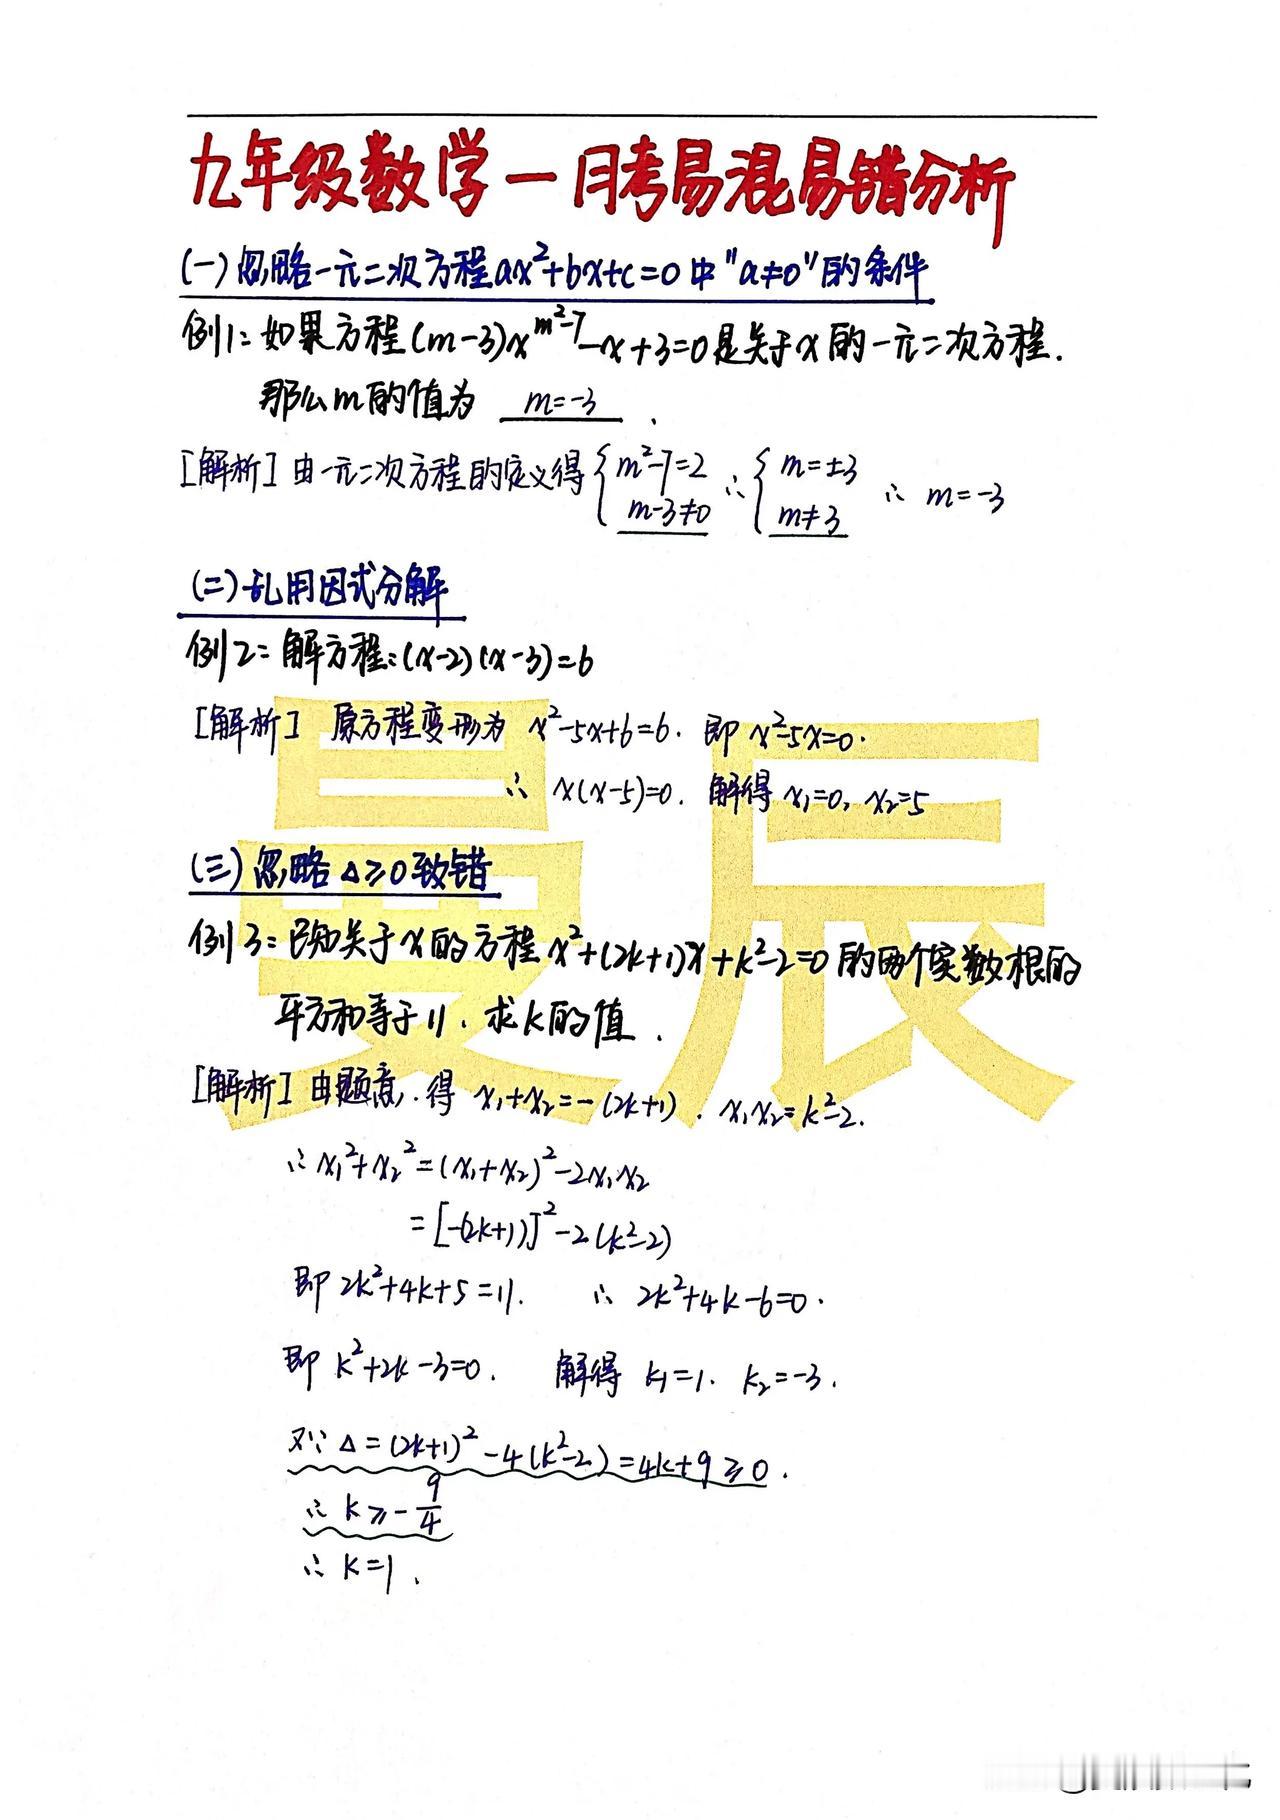 九年级数学一月考易混易错分析
(一)忽略一元二次方程ax²+bx+c=0中"a≠0"的条件
例1:如果方程(m-3)x^{m²-7}-x+3=0是关于x的一元二次方程.
那么m的值为 m=-3 .
[解析]由一元二次方程的定义得{m²-7=2 m-3≠0 ∴{m=±3 m≠3 ∴ m=-3
(二)乱用因式分解
例2:解方程:(x-2)(x-3)=6
[解析] 原方程变形为 x²-5x+6=6. 即 x²-5x=0.
∴ x(x-5)=0. 解得 x₁=0, x₂=5
(三)忽略△≥0致错
例3:已知关于x的方程x²+(2k+1)x+k²-2=0的两个实数根的
平方和等于11.求k的值.
[解析]由题意.得 x₁+x₂=-(2k+1). x₁x₂=k²-2.
∴x₁²+x₂²=(x₁+x₂)²-2x₁x₂
=[-(2k+1)]²-2(k²-2)
即 2k²+4k+5=11. ∴ 2k²+4k-6=0.
即 k²+2k-3=0. 解得 k₁=1. k₂=-3.
又∵△=(2k+1)²-4(k²-2)=4k+9≥0.
∴ k≥-9/4
∴ k=1.
曼辰